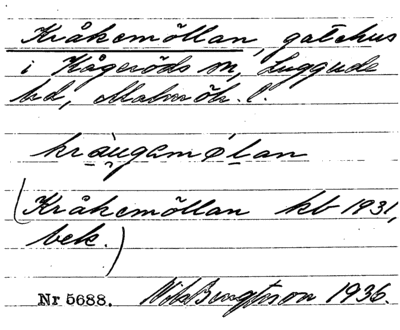 Kråkemöllan, gatehus
i Kågeröds sn, Luggude
hd, Malmöh. l.
kråu̯gəmølan
(Kråkemöllan kb 1931,
bek.)
Nr 5688. Nils Bengtsson 1936.